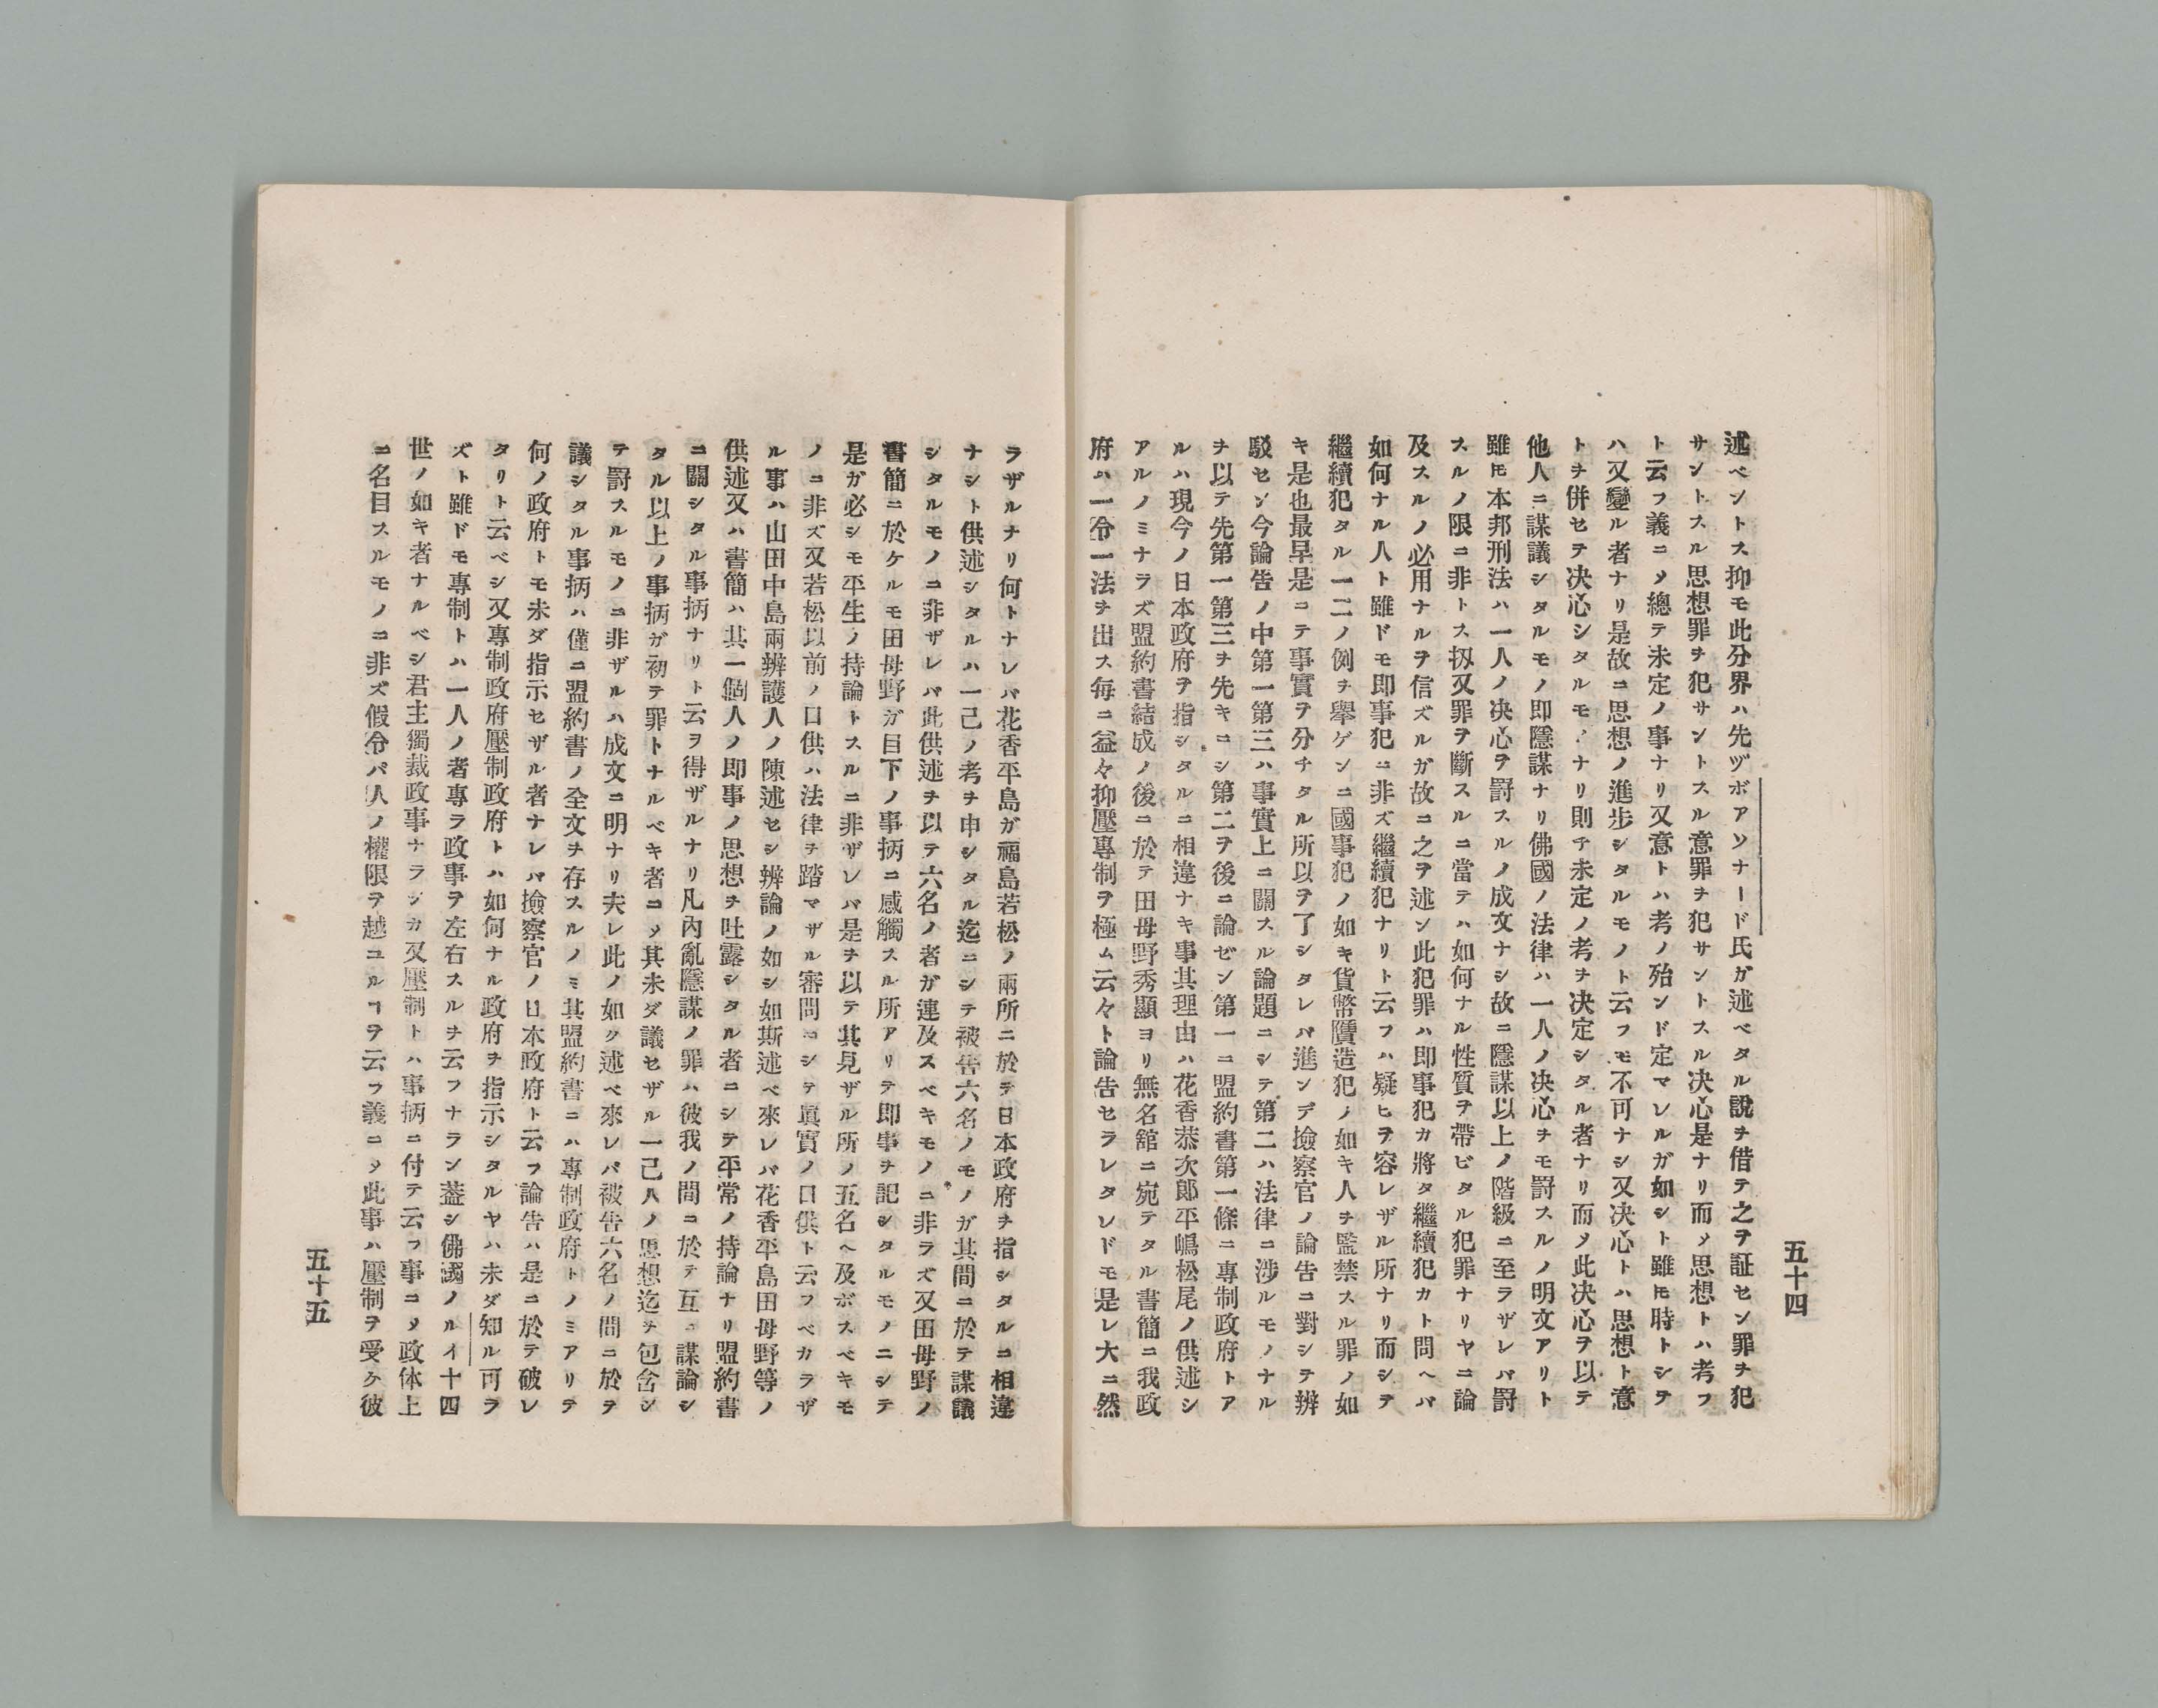 五十四
述ベントス抑モ此分界ハ先ヅボアソナード氏ガ述ベタル說チ借テ之ヲ証セン罪チ犯
サントスル思想罪チ犯サントスル意罪チ犯サントスル决心是ナリ而〆思想トハ考フ
ト云フ義ニ〆總テ未定ノ事ナリ又意トハ考ノ殆ンド定マレルガ如シト雖𪜈時トシテ
ハ又變ル者ナリ是故ニ思想ノ進步シタルモノト云フモ不可ナシ又决心トハ思想ト意
トチ併セテ决心シタルモノナリ則チ未定ノ考ヲ决定シタル者ナリ而〆此决心ヲ以テ
他人ニ謀議シタルモノ即隱謀ナリ佛國ノ法律ハ一人ノ决心チモ罸スルノ明文アリト
雖𪜈本邦刑法ハ一人ノ决心ヲ罸スルノ成文ナシ故ニ隱謀以上ノ階級ニ至ラザレバ罸
スルノ限ニ非トス扨又罪ヲ斷スルニ當テハ如何ナル性質ヲ帶ビタル犯罪ナリヤニ論
及スルノ必用ナルヲ信ズルガ故ニ之ヲ述ン此犯罪ハ即事犯カ將タ繼續犯カト問ヘバ
如何ナル人ト雖ドモ即事犯ニ非ズ繼續犯ナリト云フハ疑ヒヲ容レザル所ナリ而シテ
繼續犯タル一二ノ例チ擧ゲンニ國事犯ノ如キ貨幣贋造犯ノ如キ人チ監禁スル罪ノ如
キ是也最早是ニテ事實ヲ分チタル所以ヲ了シタレバ進ンデ撿察官ノ論告ニ對シテ辨
駁セン今論告ノ中第一第三ハ事實上ニ關スル論題ニシテ第二ハ法律ニ涉ルモノナル
チ以テ先第一第三チ先キニシ第二ヲ後ニ論ゼン第一ニ盟約書第一條ニ專制政府トア
ルハ現今ノ日本政府ヲ指シタルニ相違ナキ事其理由ハ花香恭次郞平嶋松尾ノ供述シ
アルノミナラズ盟約書結成ノ後ニ於テ田母野秀顯ヨリ無名舘ニ宛テタル書簡ニ我政
府ハ一令一法チ出ス每ニ益々抑壓專制ヲ極ム云々ト論告セラレタレドモ是レ大ニ然
ラザルナリ何トナレバ花香平島ガ福島若松ノ兩所ニ於テ日本政府チ指シタルニ相違
ナシト供述シタルハ一己ノ考チ申シタル迄ニシテ被告六名ノモノガ其間ニ於テ謀議
シタルモノニ非ザレバ此供述チ以テ六名ノ者ガ連及スベキモノニ非ラズ又田母野ノ
書簡ニ於ケルモ田母野ガ目下ノ事柄ニ感觸スル所アリテ即事チ記シタルモノニシテ
是ガ必シモ平生ノ持論トスルニ非ザレバ是チ以テ其見ザル所ノ五名ヘ及ボスベキモ
ノニ非ズ又若松以前ノ口供ハ法律チ踏マザル審問ニシテ眞實ノ口供ト云フベカラザ
ル事ハ山田中島兩辨護人ノ陳述セシ辨論ノ如シ如斯述ベ來レバ花香平島田母野等ノ
供述又ハ書簡ハ其一個人ノ即事ノ思想チ吐露シタル者ニシテ平常ノ持論ナリ盟約書
ニ關シタル事柄ナリト云ヲ得ザルナリ凡內亂隱謀ノ罪ハ彼我ノ間ニ於テ互ニ謀論シ
タル以上ノ事柄ガ初テ罪トナルベキ者ニ〆其未ダ議セザル一己人ノ思想迄チ包含シ
テ罸スルモノニ非ザルハ成文ニ明ナリ夫レ此ノ如ク述ベ來レバ被告六名ノ間ニ於ヲ
議シタル事柄ハ僅ニ盟約書ノ全文チ存スルノミ其盟約書ニハ專制政府トノミアリテ
何ノ政府トモ未ダ指示セザル者ナレバ撿察官ノ日本政府ト云フ論告ハ是ニ於テ破レ
タリト云ベシ又專制政府壓制政府トハ如何ナル政府チ指示シタルヤハ未ダ知ル可ラ
ズト雖ドモ專制トハ一人ノ者專ラ政事ヲ左右スルチ云フナラン蓋シ佛國ノルイ十四
世ノ如キ者ナルベシ君主獨裁政事ナランカ又壓制トハ事柄ニ付テ云フ事ニ〆政体上
ニ名目スルモノニ非ズ假令バ人ノ權限ヲ越ユルヿヲ云フ義ニ〆此事ハ壓制ヲ受ケ彼
五十五